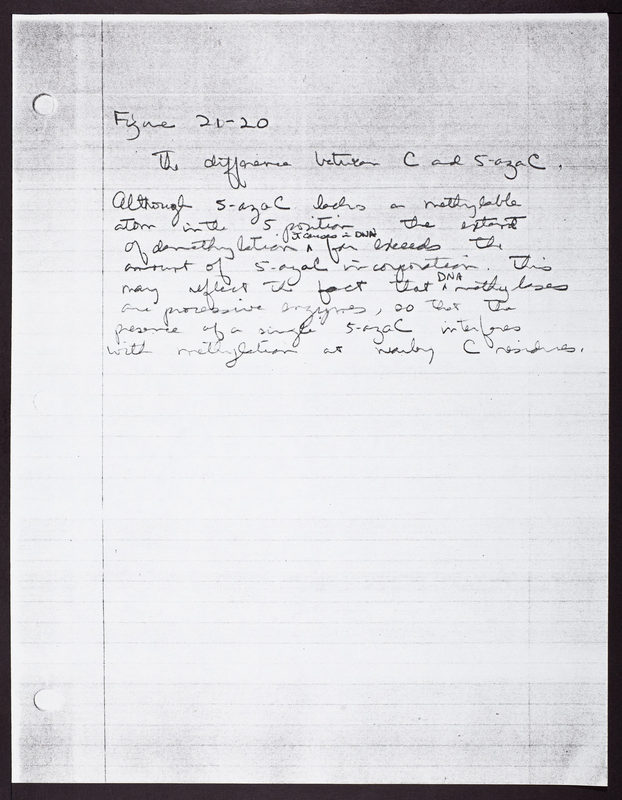 Figure 21-20
The difference between C and 5-azaC.
Although 5-azaC lacks a methylable
atom in the 5 position the extent
it causes in DNA
of demethylation ^ far exceeds the
amount of 5-azaC incorporation. This
DNA
may reflect the fact that ^ methylases
are processive enzymes, so that the
presence of a single 5-azaC interferes
with methylation at nearby C residues.